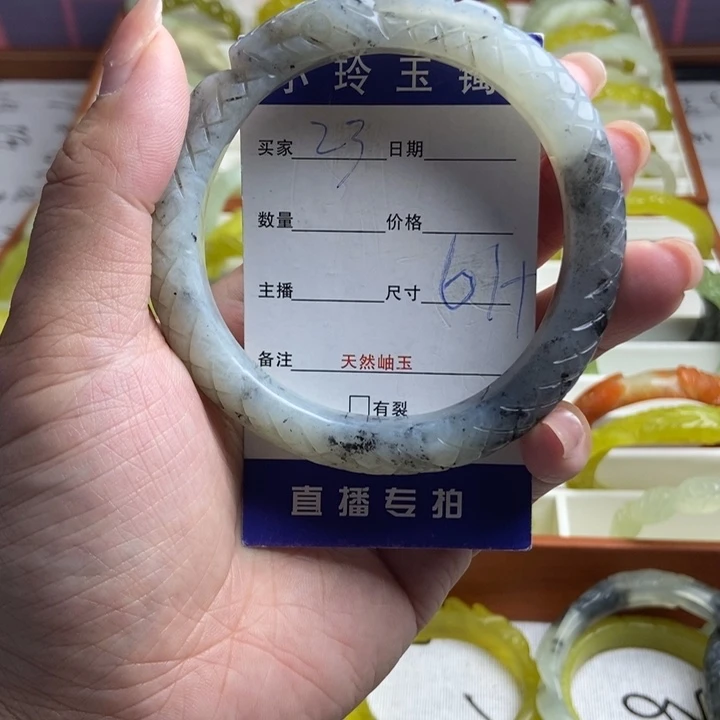 小玲玉镯
买家 23 日期
数量 价格
主播 尺寸 61+
备注 天然岫玉
□有裂
直播专拍